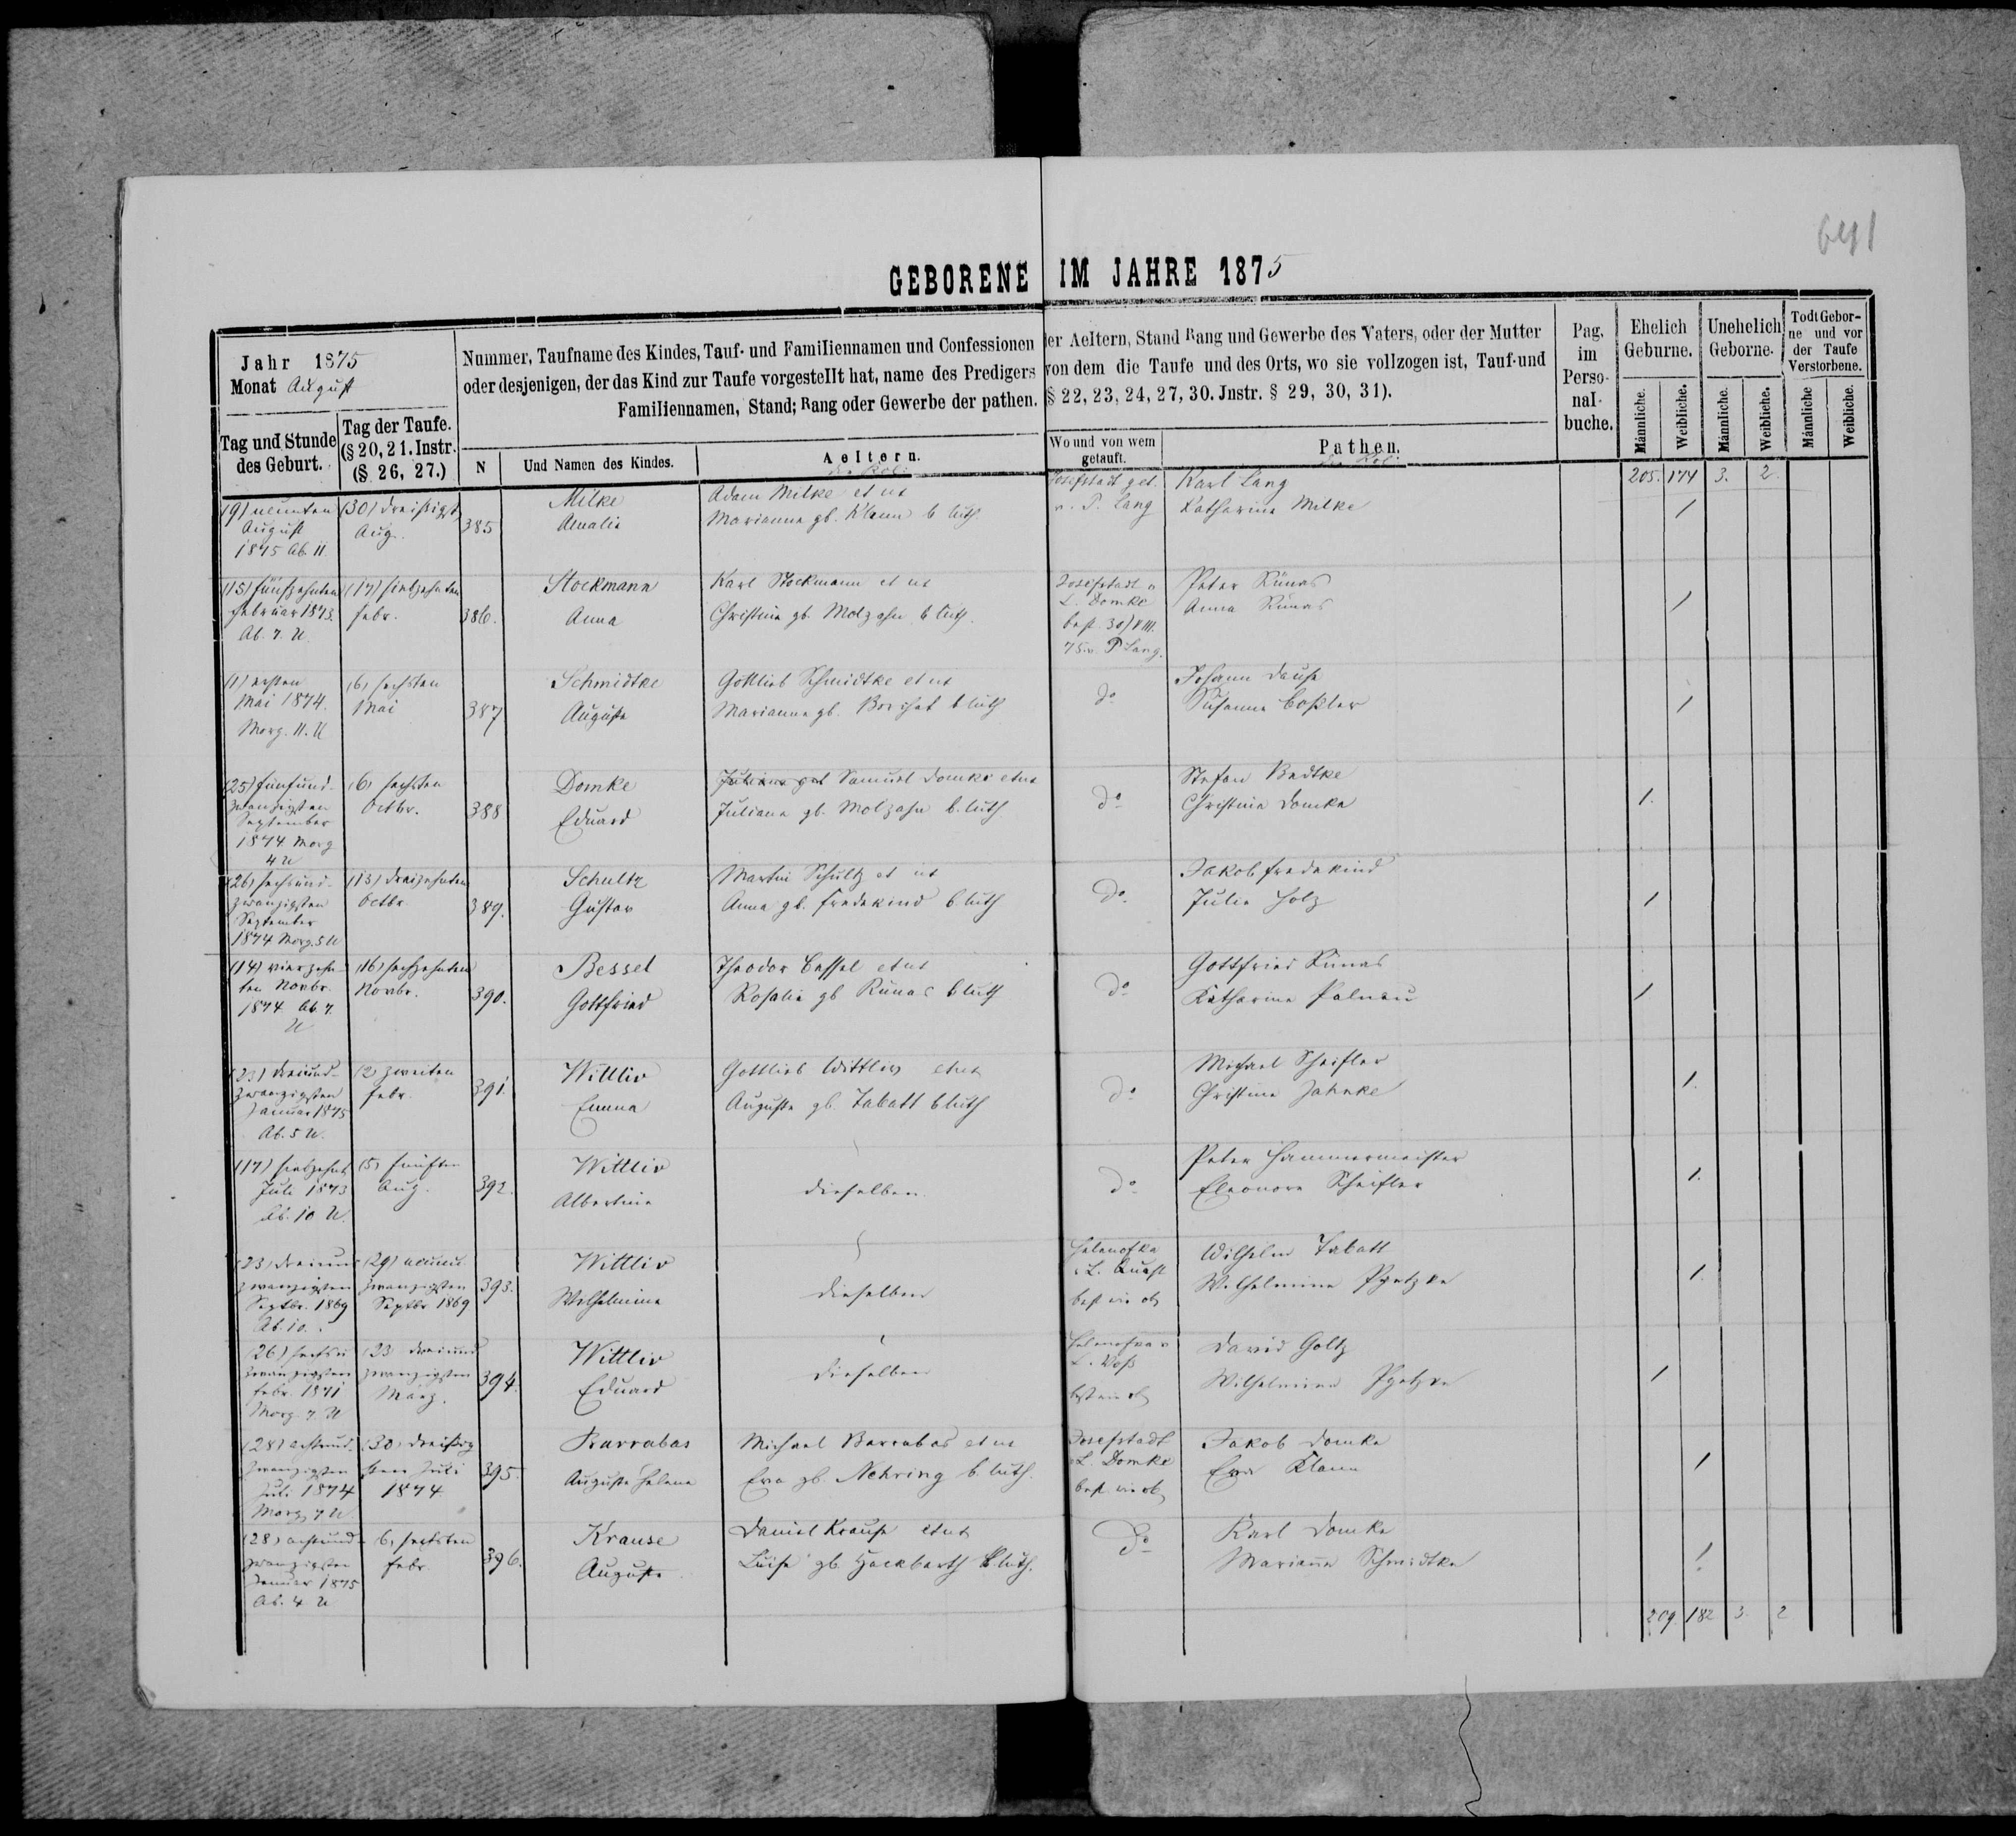 641
GEBORENE IM JAHRE 1875
Jahr 1875
Monat August
Nummer, Taufname des Kindes, Tauf- und Familiennamen und Confessionen der Aeltern, Stand Rang und Gewerbe des Vaters, oder der Mutter
oder desjenigen, der das Kind zur Taufe vorgestellt hat, name des Predigers von dem die Taufe und des Orts, wo sie vollzogen ist, Tauf-und
Familiennamen, Stand; Rang oder Gewerbe der pathen. § 22, 23, 24, 27, 30. Jnstr. § 29, 30, 31).
Pag. im Perso-nal-buche.
Ehelich Geburne.
Unehelich Geborne.
Todt Gebor-ne und vor der Taufe Verstorbene.
Männliche. Weibliche. Männliche. Weibliche. Männliche Weibliche.
Tag und Stunde des Geburt.
Tag der Taufe. (§ 20, 21. Instr. (§ 26, 27.)
N
Und Namen des Kindes.
Aeltern.
Wo und von wem getauft.
Pathen.
205. 174 3. 2
(9) neunten August 1875 Ab. 11
(30) dreißigst Aug.
385
Milke
Amalia
Adam Milke et ux
Marianna gb. Klann b luth
Josefstadt get. v. P. Lang
Karl Lang
Katharina Milke
1
(15) fünfzehnten Februar 1873. Ab. 7. U.
(17) siebzehnten Febr.
386.
Stockmann
Anna
Karl Stockmann et ux
Christine gb. Molzahn b luth.
Josefstadt v L. Domke best. 30/VIII. 75. v. P Lang.
Peter Rünas
Anna Rünas
1
(1) ersten Mai 1874. Morg. 11. U
(6) sechsten Mai
387
Schmidtke
Auguste
Gottlieb Schmidtke et ux
Marianna gb. b luth
do
Johann
Susanna
1
(25) fünfund-zwanzigsten September 1874 Morg 4 U
(6) sechsten Octbr.
388
Domke
Eduard
Samuel Domke et ux
Juliana gb. Molzahn b. luth
do
Stefan Radtke
Christina Domke
1.
(26) sechsund-zwanzigsten September 1874 Morg. 5 U
(13) dreizehnten Octbr.
389.
Schultz
Gustav
Martin Schultz et ux
Anna gb. Fredekind b luth
do
Jakob Fredekind
Julia Holz
1
(14) vierzehn-ten Novbr. 1874 Ab. 7. U
(16) sechzehnten Novbr.
390.
Bessel
Gottfried
Theodor Bessel et ux
Rosalie gb Rünas b luth
do
Gottfried Rünas
Katharina Palnau
1
(23) dreiund-zwanzigsten Januar 1875 Ab. 5 U.
(2) zweiten Febr.
391.
Wittliv
Emma
Gottlieb Wittliv et ux
Auguste gb. Tabatt b luth
do
Michael Scheifler
Christine Jahnke
1.
(17) siebzehnt Juli 1873 Ab. 10 U.
(5) fünften Aug.
392.
Wittliv
Albertine
dieselben
do
Peter Hammermeister
Eleonore Scheifler
1.
(23) dreiund zwanzigsten Septbr. 1869 Ab. 10.
(29) neunu. zwanzigsten Septbr 1869
393.
Wittliv
Wilhelmine
dieselben
Helenofka v L. Quast best wie ob
Wilhelm Tabatt
Wilhelmine
1.
(26) sechsu zwanzigsten Febr. 1871 Morg. 7. U
(23) dreiund zwanzigsten März.
394.
Wittliv
Eduard
dieselben
Helenofka v L. Voß best wie ob
David Goltz
Wilhelmine
1
(28) achtund. zwanzigsten Juli 1874 Morg 7 U.
(30) dreißig sten Juli 1874
395.
Barrabas
Auguste Helena
Michael Barrabas et ux
Eva gb Nehring b. luth.
Josefstadt L. Domke best. wie ob
Jakob Domke
Eva Klann
1
(28) achtund zwanzigsten Januar 1875 Ab. 4 U
6, sechsten Febr.
396.
Krause
Auguste
Daniel Krause et ux
Luise gb Hackbarth b luth.
do
Karl Domke
Marianna Schmidtke
1
209. 182 3. 2